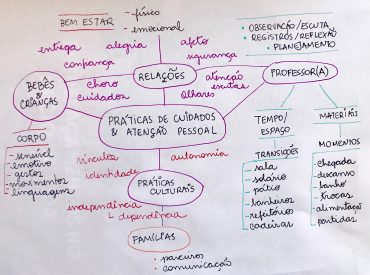 BEM ESTAR
- físico
- emocional
• OBSERVAÇÃO/ESCUTA
• REGISTROS/REFLEXÃO
• PLANEJAMENTO
entrega
alegria
afeto
confiança
segurança
BEBÊS
&
CRIANÇAS
RELAÇÕES
PROFESSOR(A)
choro
cuidados
olhares
atenção
escutas
PRÁTICAS DE CUIDADOS
& ATENÇÃO PESSOAL
CORPO
- sensível
- emotivo
- gestos
- movimentos
- linguagens
vínculos
identidade
autonomia
PRÁTICAS
CULTURAIS
independência
dependência
FAMÍLIAS
• parceiros
• comunicação
TEMPO/
ESPAÇO
TRANSIÇÕES
- sala
- solário
- pátio
- banheiros
- refeitório
- cadeiras
MATERIAIS
MOMENTOS
- chegada
- descanso
- banho
- trocas
- alimentação
- partidas